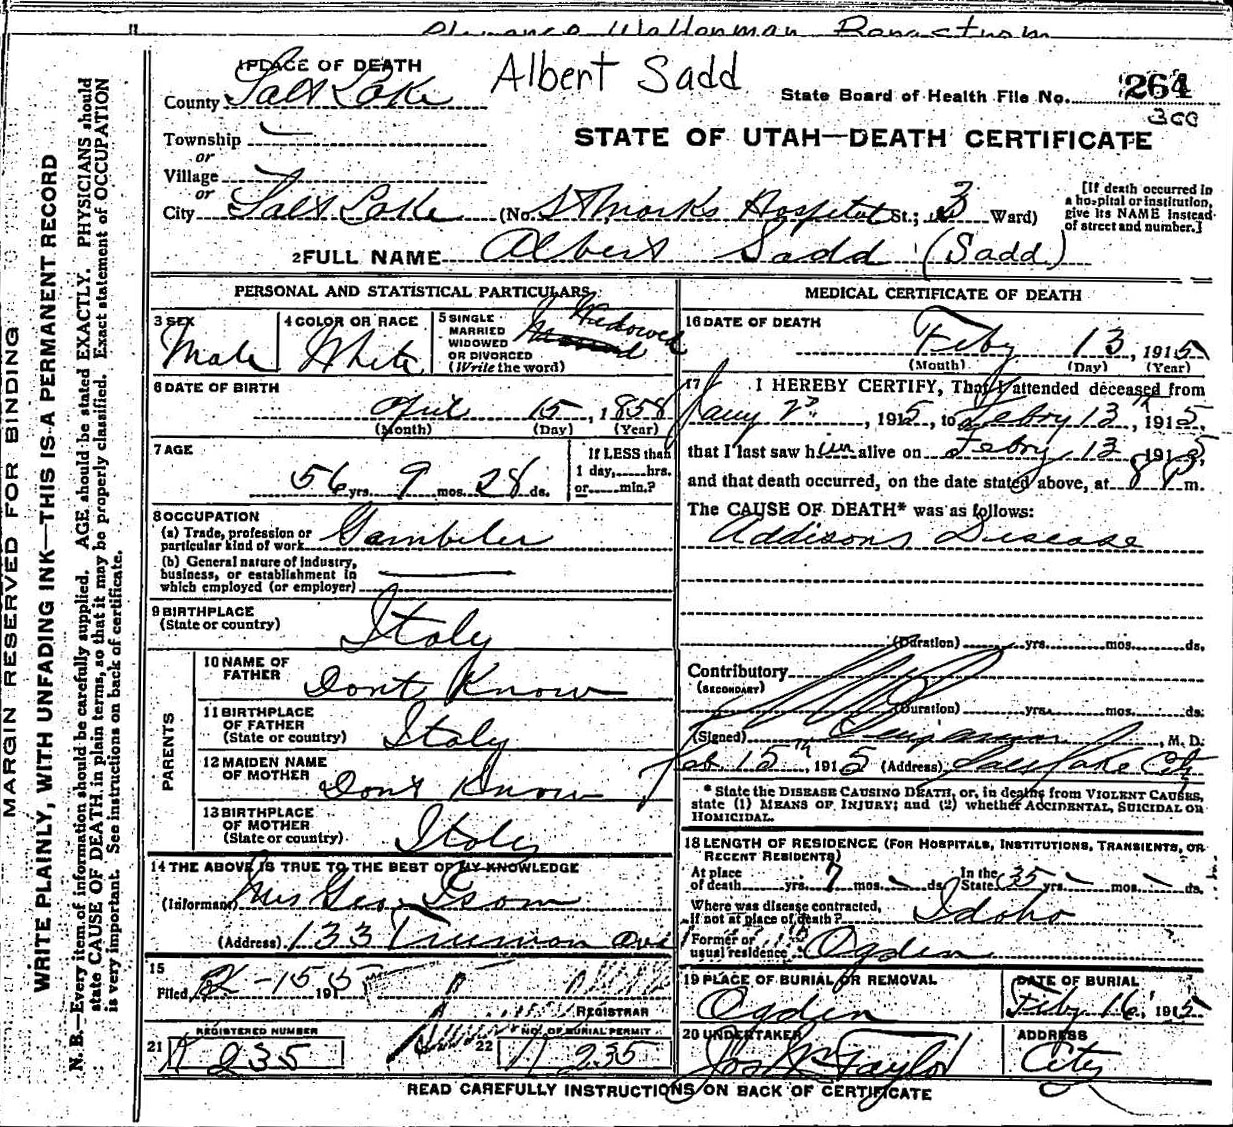 1 PLACE OF DEATH
Albert Sadd
County Salt Lake
State Board of Health File No. 264
300
Township
or
Village
or
City Salt Lake (No. St Marks Hospital St.; 3 Ward)
STATE OF UTAH—DEATH CERTIFICATE
[If death occurred in
a hospital or institution,
give its NAME instead
of street and number.]
2 FULL NAME Albert Sadd (Sadd)
PERSONAL AND STATISTICAL PARTICULARS
3 SEX
Male
4 COLOR OR RACE
White
5 SINGLE
MARRIED
WIDOWED
OR DIVORCED
(Write the word)
Widowed
6 DATE OF BIRTH
April 15, 1858
(Month) (Day) (Year)
7 AGE
56 yrs. 9 mos. 28 ds.
If LESS than
1 day, hrs.
or min.?
8 OCCUPATION
(a) Trade, profession or
particular kind of work Gambler
(b) General nature of industry,
business, or establishment in
which employed (or employer)
9 BIRTHPLACE
(State or country)
Italy
PARENTS
10 NAME OF
FATHER
Dont Know
11 BIRTHPLACE
OF FATHER
(State or country)
Italy
12 MAIDEN NAME
OF MOTHER
Dont Know
13 BIRTHPLACE
OF MOTHER
(State or country)
Italy
14 THE ABOVE IS TRUE TO THE BEST OF MY KNOWLEDGE
(Informant) Mrs Geo. Isom
(Address) 133 Truman ave
15
Filed 1915
REGISTRAR
REGISTERED NUMBER
21 235
NO. OF BURIAL PERMIT
22 235
MEDICAL CERTIFICATE OF DEATH
16 DATE OF DEATH
Feby 13, 1915
(Month) (Day) (Year)
17 I HEREBY CERTIFY, That I attended deceased from
1915, to Febry 13th, 1915,
that I last saw him alive on Febry 13 1915,
and that death occurred, on the date stated above, at 8 P m.
The CAUSE OF DEATH* was as follows:
Addisons Disease
(Duration) yrs. mos. ds.
Contributory
(SECONDARY)
(Duration) yrs. mos. ds.
(Signed) , M. D.
Feb. 15th, 1915 (Address) Salt Lake City
* State the DISEASE CAUSING DEATH, or, in deaths from VIOLENT CAUSES,
state (1) MEANS OF INJURY; and (2) whether ACCIDENTAL, SUICIDAL OR
HOMICIDAL.
18 LENGTH OF RESIDENCE (FOR HOSPITALS, INSTITUTIONS, TRANSIENTS, OR
RECENT RESIDENTS)
At place
of death yrs. 7 mos. ds.
In the
State 35 yrs. mos. ds.
Where was disease contracted,
if not at place of death? Idaho
Former or
usual residence Ogden
19 PLACE OF BURIAL OR REMOVAL
Ogden
DATE OF BURIAL
Feby 16, 1915
20 UNDERTAKER
Jos Wm Taylor
ADDRESS
City
READ CAREFULLY INSTRUCTIONS ON BACK OF CERTIFICATE
MARGIN RESERVED FOR BINDING
WRITE PLAINLY, WITH UNFADING INK—THIS IS A PERMANENT RECORD
N. B.—Every item of information should be carefully supplied. AGE should be stated EXACTLY. PHYSICIANS should
state CAUSE OF DEATH in plain terms, so that it may be properly classified. Exact statement of OCCUPATION
is very important. See instructions on back of certificate.